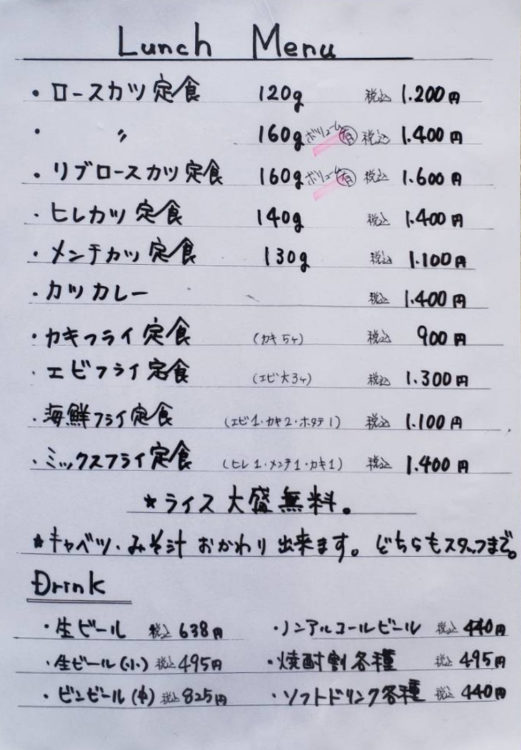 Lunch Menu
・ロースカツ定食 120g 税込 1.200円
・ 〃 160g ボリューム有 税込 1.400円
・リブロースカツ定食 160g ボリューム有 税込 1.600円
・ヒレカツ定食 140g 税込 1.400円
・メンチカツ定食 130g 税込 1.100円
・カツカレー 税込 1.400円
・カキフライ定食 (カキ5ヶ) 税込 900円
・エビフライ定食 (エビ大3ヶ) 税込 1.300円
・海鮮フライ定食 (エビ1・カキ2・ホタテ1) 税込 1.100円
・ミックスフライ定食 (ヒレ1・メンチ1・カキ1) 税込 1.400円
*ライス大盛無料。
*キャベツ・みそ汁おかわり出来ます。どちらもスタッフまで。
Drink
・生ビール 税込 638円 ・ノンアルコールビール 税込 440円
・生ビール(小) 税込 495円 ・焼酎割各種 税込 495円
・ビンビール(中) 税込 825円 ・ソフトドリンク各種 税込 440円